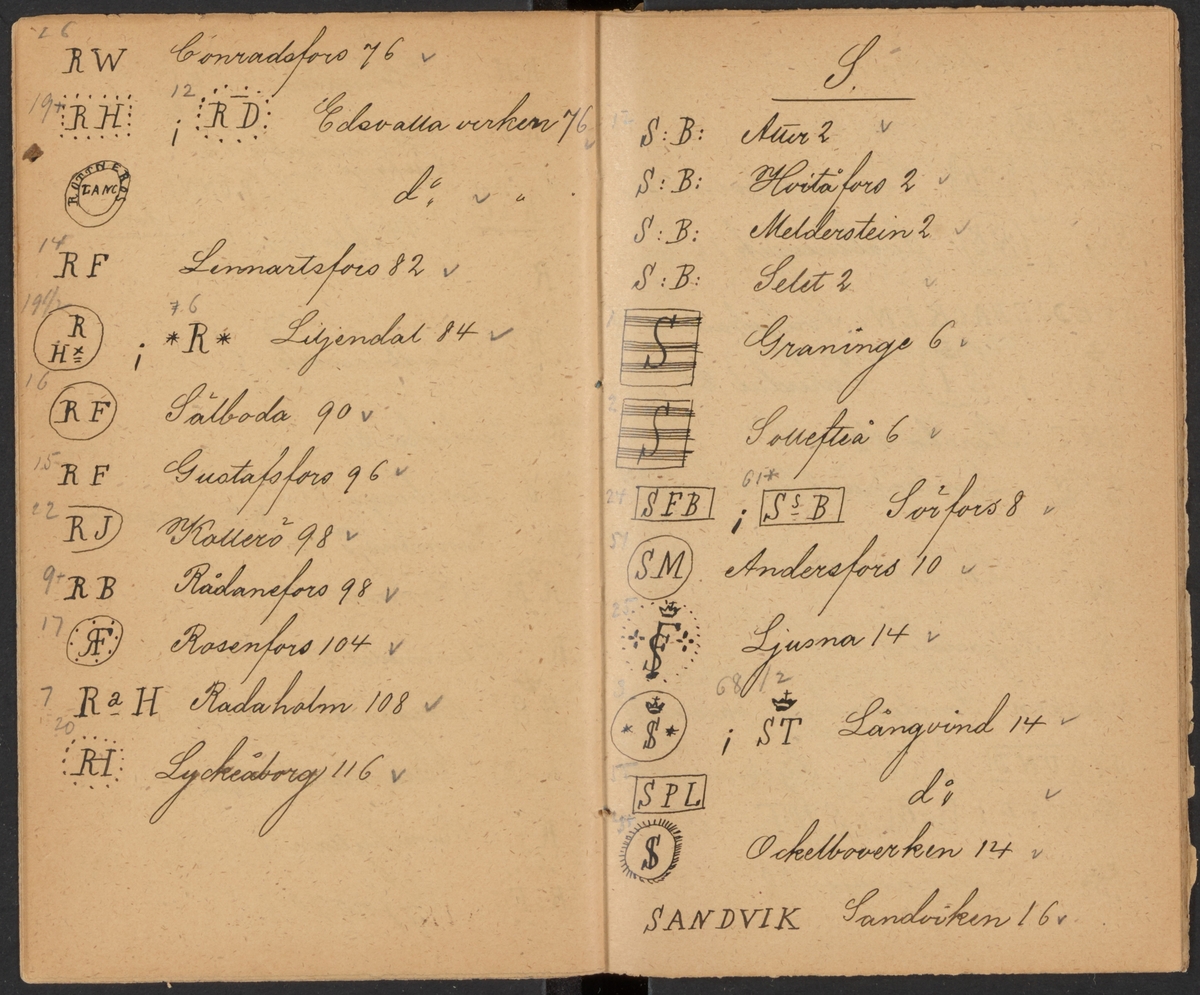 26
RW Conradsfors 76 ✓
19+ 12
RH ; RD Edsvalla verken 76 ✓
ROTTNEROS DANC d:o ✓ "
14
RF Lennartsfors 82 ✓
19 1/2 76
R H x ; *R* Liljendal 84 ✓
16
RF Sälboda 90 ✓
15
RF Gustafsfors 96 ✓
22
RJ Kollerö 98 ✓
9+ RB Rådanefors 98 ✓
17 RF Rosenfors 104 ✓
7 RaH Radaholm 108 ✓
20
RI Lyckåborg 116 ✓
S.
S:B: Attur 2 ✓
S:B: Hvitåfors 2 ✓
S:B: Melderstein 2 ✓
S:B: Selet 2 ✓
S Graninge 6 ✓
S Sollefteå 6 ✓
24 61*
SFB ; SsB Sörfors 8 ✓
51
SM Andersfors 10 ✓
25
SF Ljusna 14 ✓
68 1/2
*S* ; ST Långvind 14 ✓
SPL d:o ✓
S Ockelboverken 14 ✓
SANDVIK Sandviken 16 ✓